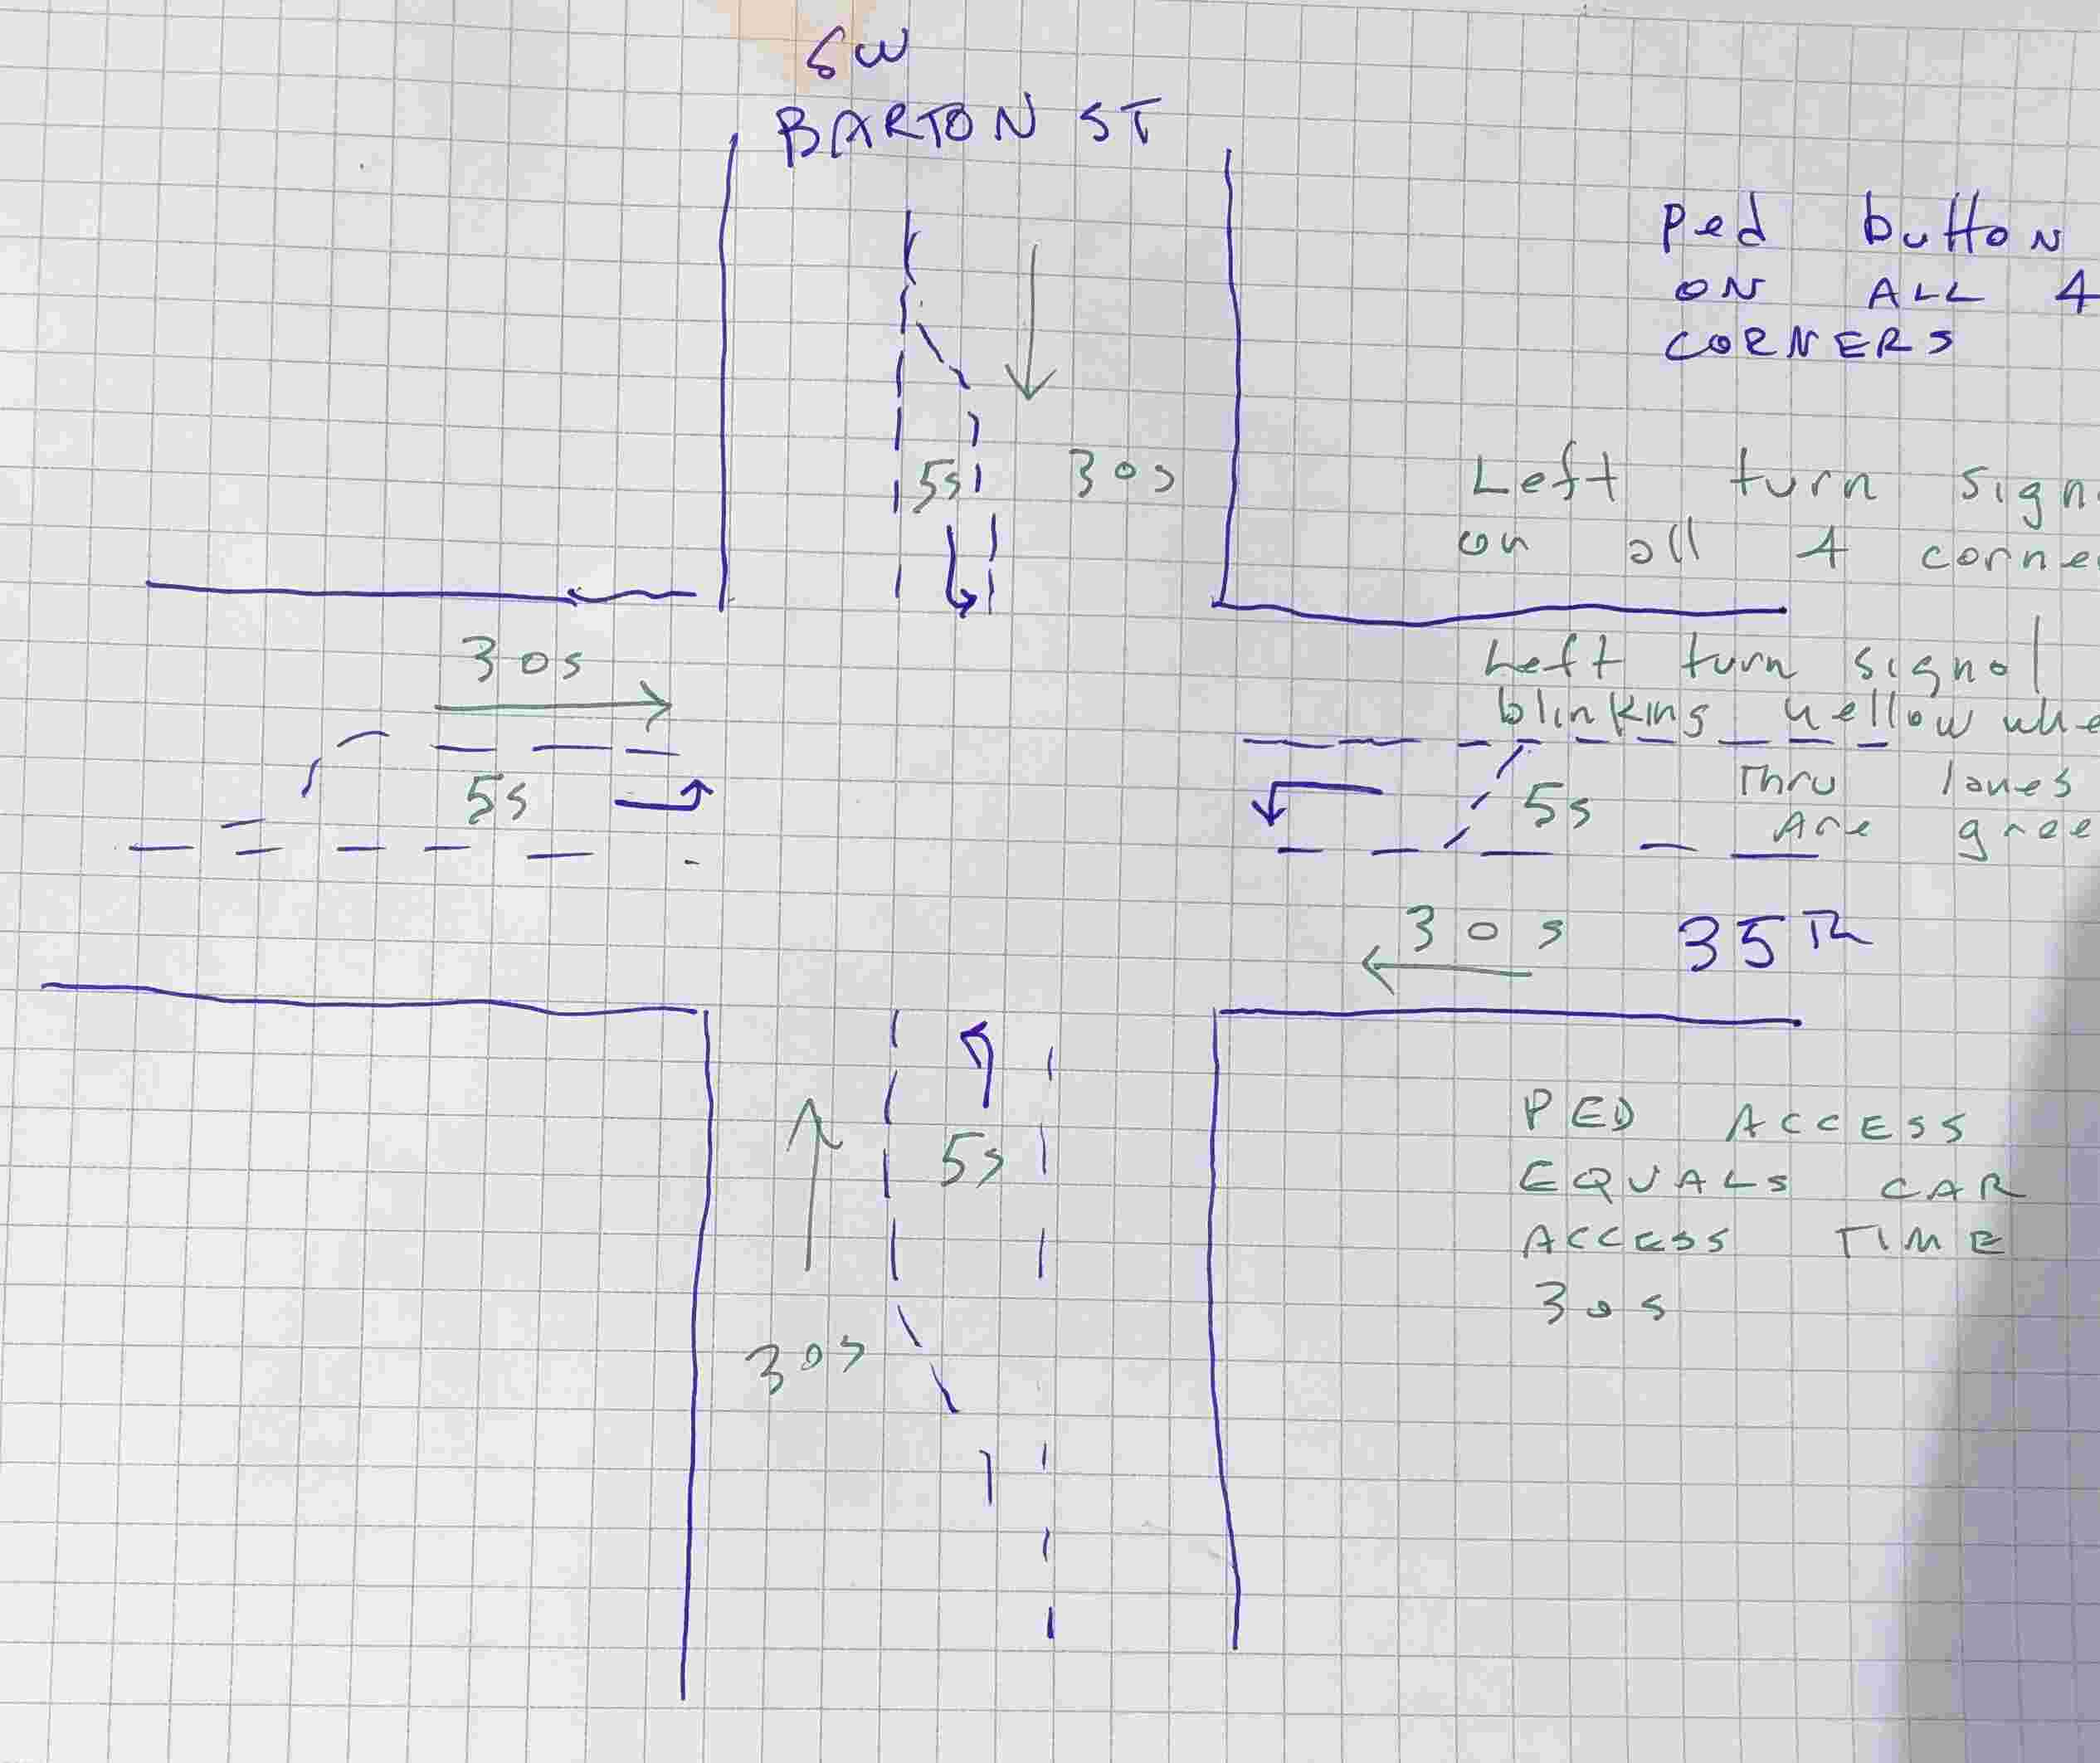 SW
BARTON ST
Ped button
ON ALL 4
CORNERS
Left turn sign
on all 4 corne
5s 30s
30s
Left turn signal
blinking yellow whe
Thru lanes
Are gree
5s
5s
30s 35Th
PED ACCESS
EQUALS CAR
ACCESS TIME
30s
5s
30s